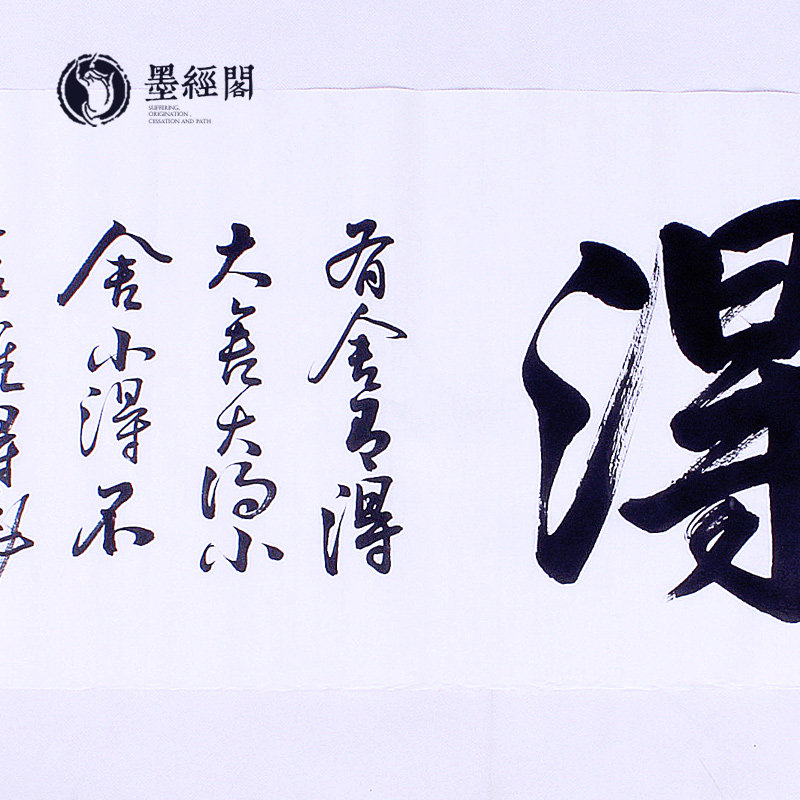 墨經閣
SUFFERING,
ORIGINATION,
CESSATION AND PATH
得
有舍有得
大舍大得小
舍小得不
舍難得